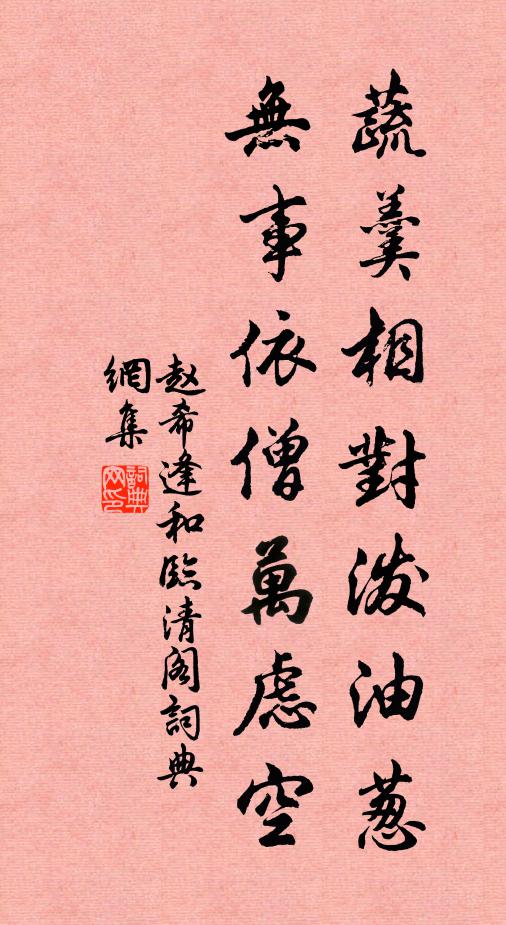 蔬羹相對潑油葱
無事依僧萬慮空
赵希逢和臨清阁詞典
網集
詞典
网印